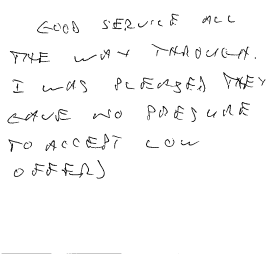 GOOD SERVICE ALL
THE WAY THROUGH.
I WAS PLEASED THEY
GAVE NO PRESURE
TO ACCEPT LOW
OFFERS